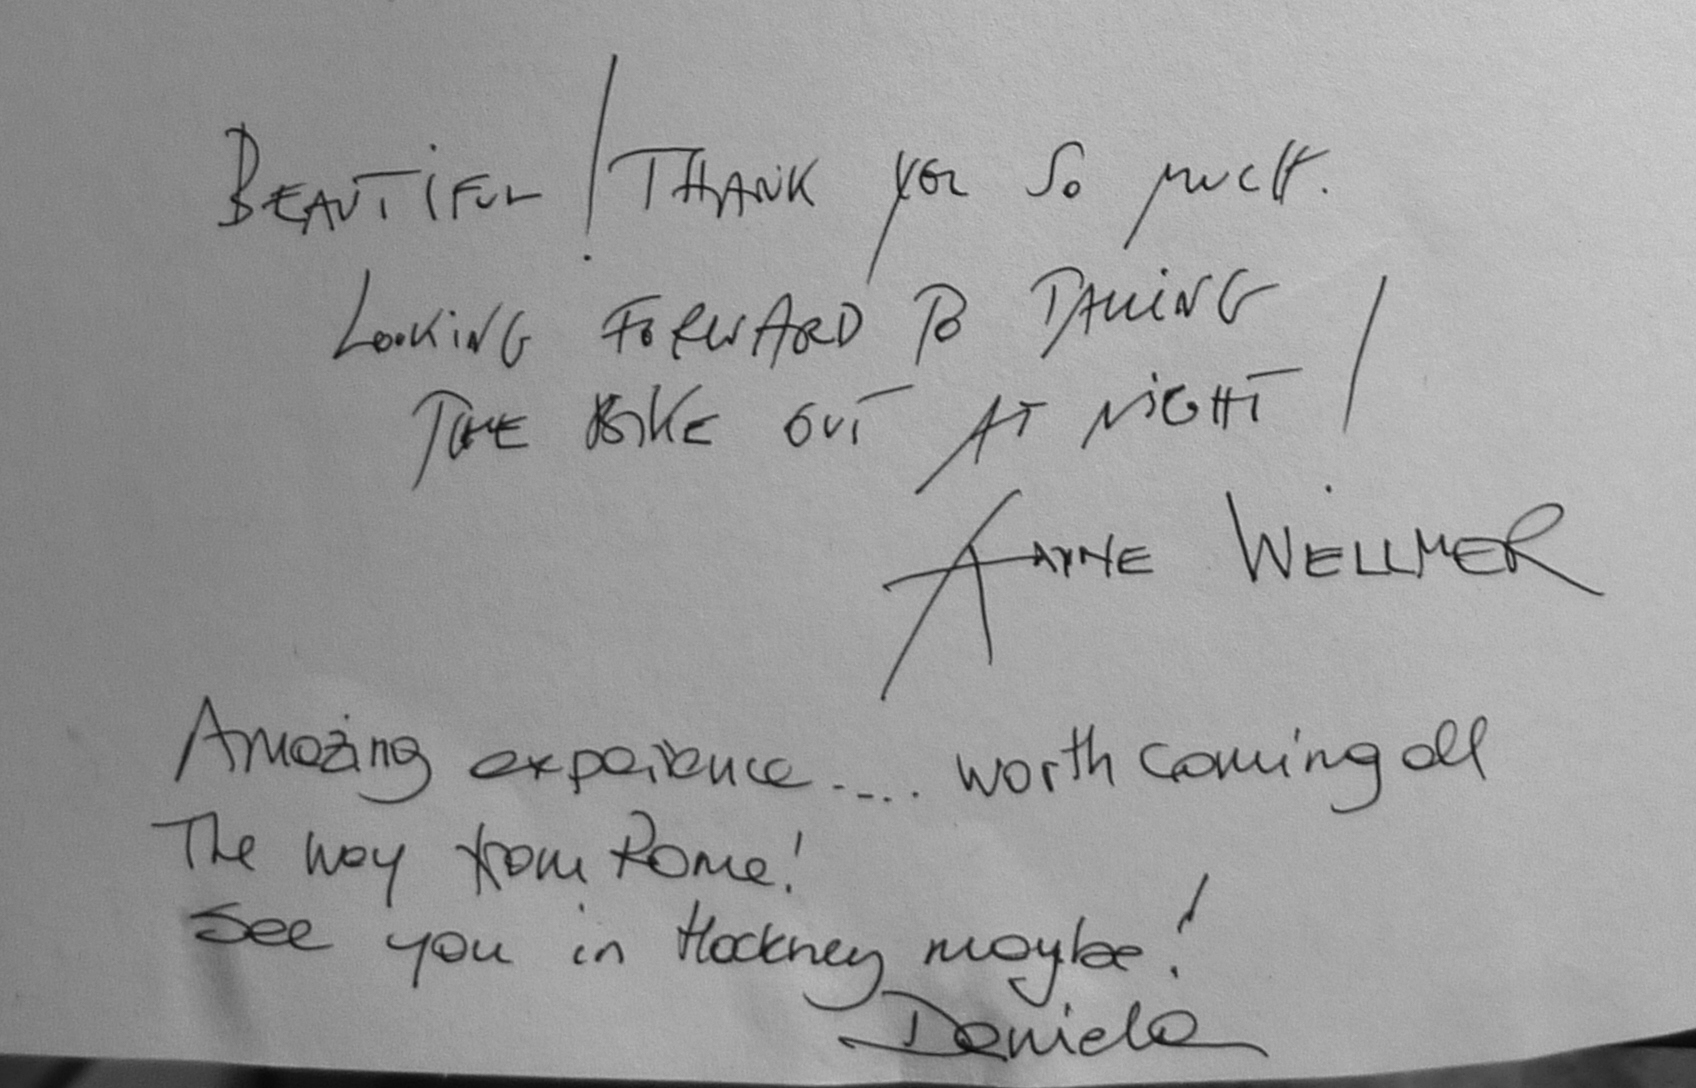 BEAUTIFUL! THANK YOU SO MUCH.
LOOKING FORWARD TO TAKING
THE BIKE OUT AT NIGHT!
WELLMER
Amazing experience.... worth coming all
The way from Rome!
See you in Hackney maybe!
Daniela